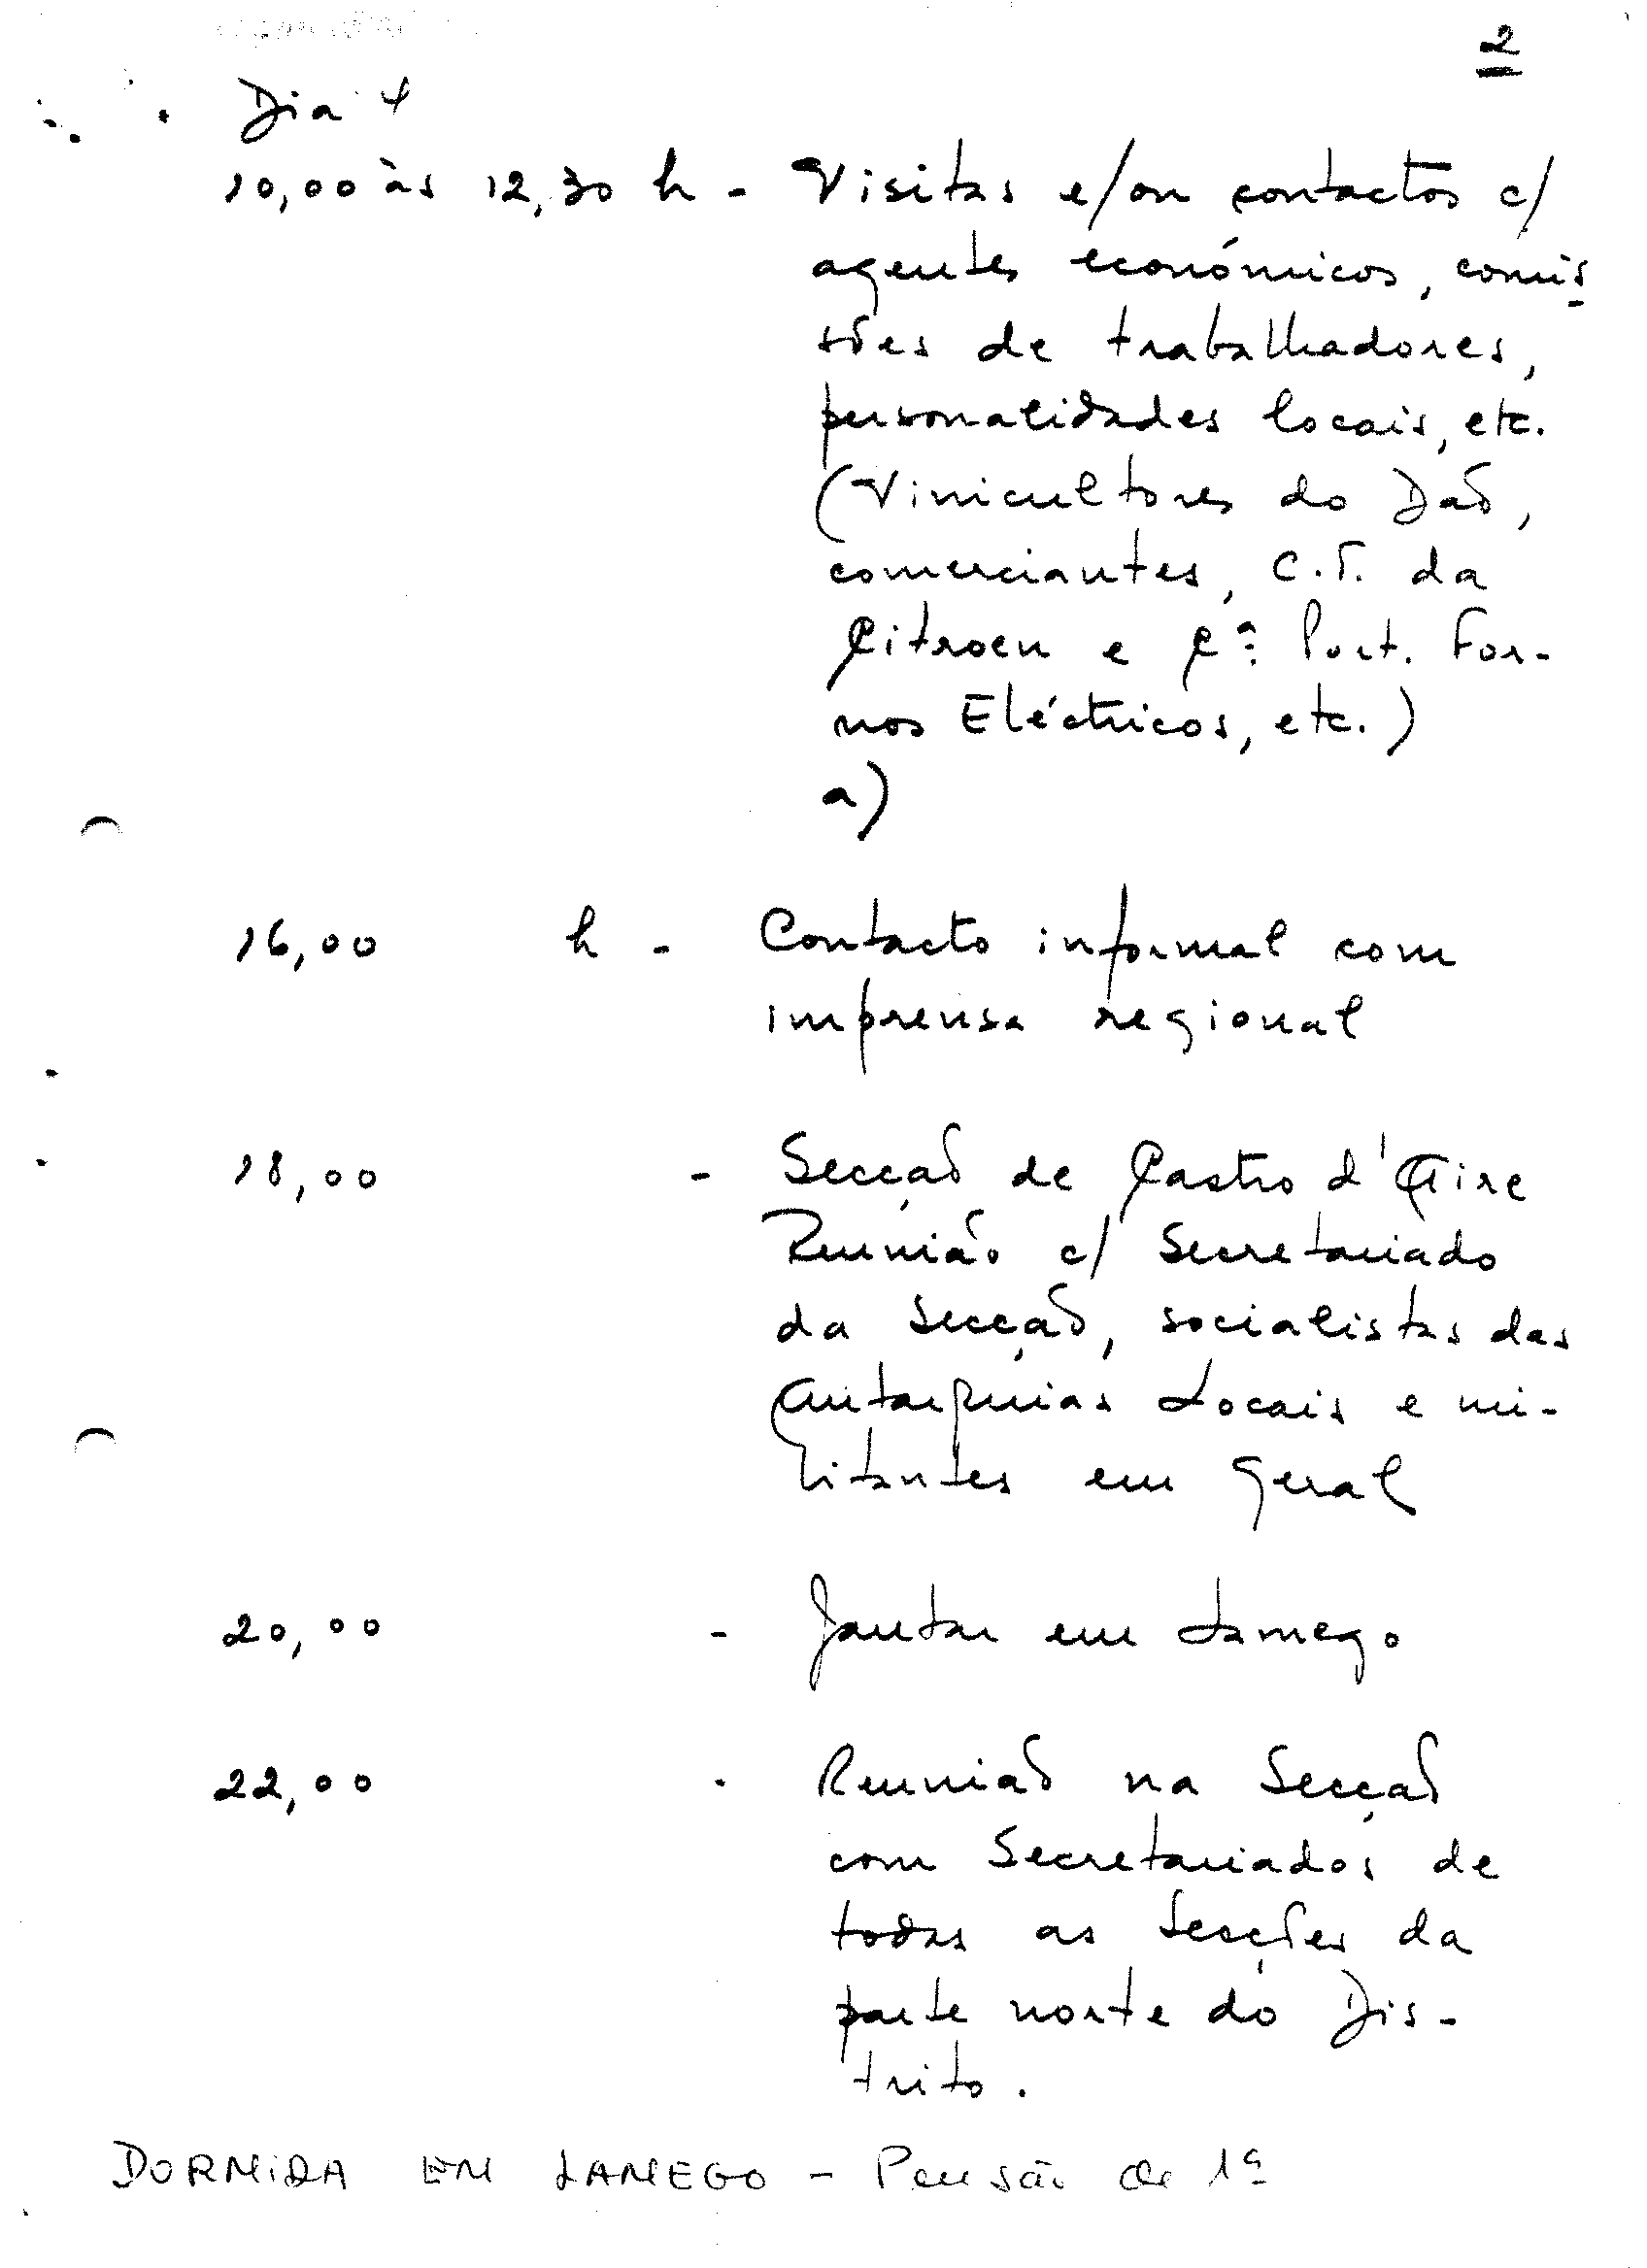 2
Dia 4
10,00 às 12,30 h - Visitas e/ou contactos c/
agentes económicos, comis-
sões de trabalhadores,
personalidades locais, etc.
(Vinicultores do Dão,
comerciantes, C.T. da
Citroen e Cª Port. For-
nos Eléctricos, etc.)
a)
16,00 h - Contacto informal com
imprensa regional
18,00 - Secção de Castro d'Aire
Reunião c/ Secretariado
da Secção, socialistas das
Autarquias Locais e mi-
litantes em Geral
20,00 - Jantar em Lamego
22,00 - Reunião na Secção
com Secretariados de
todas as Secções da
parte norte do Dis-
trito.
DORMIDA EM LAMEGO - Pensão de 1ª